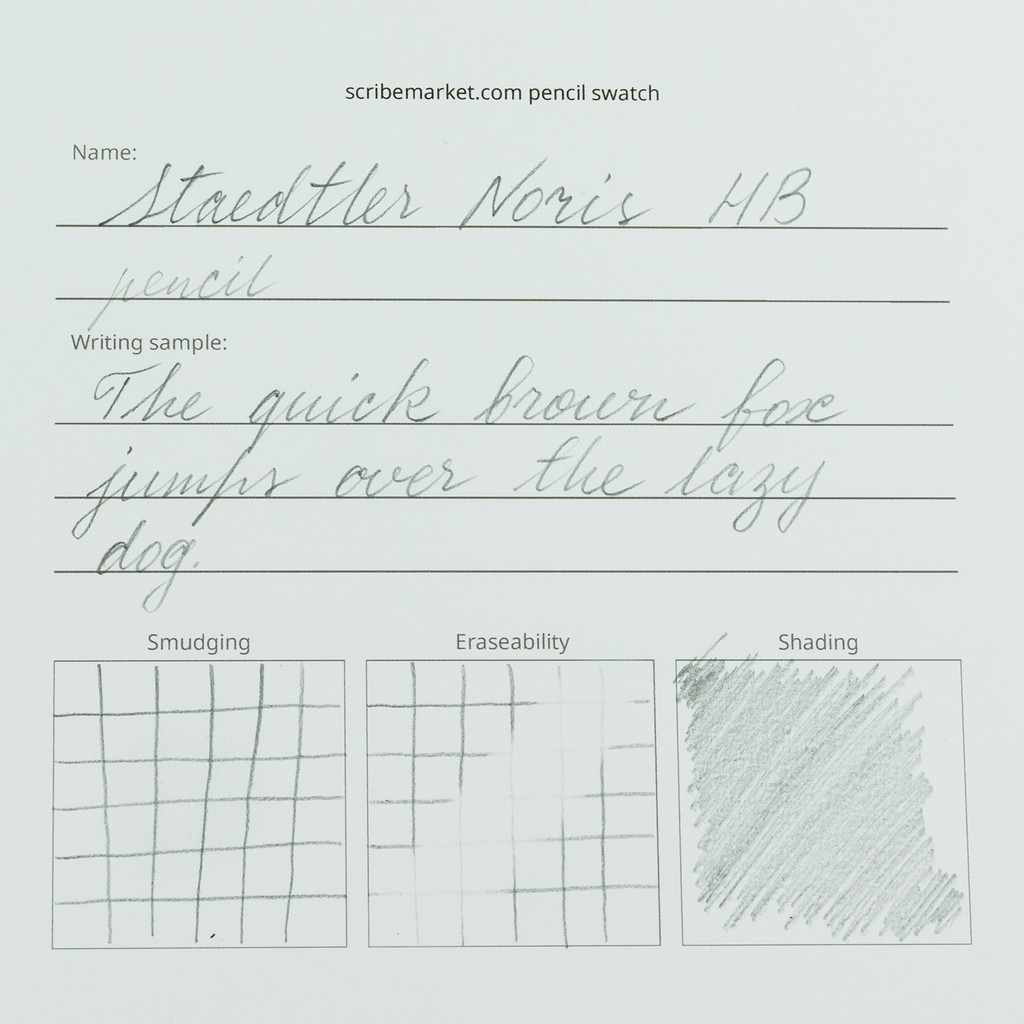 scribemarket.com pencil swatch
Name:
Staedtler Noris HB
pencil
Writing sample:
The quick brown fox
jumps over the lazy
dog.
Smudging Eraseability Shading